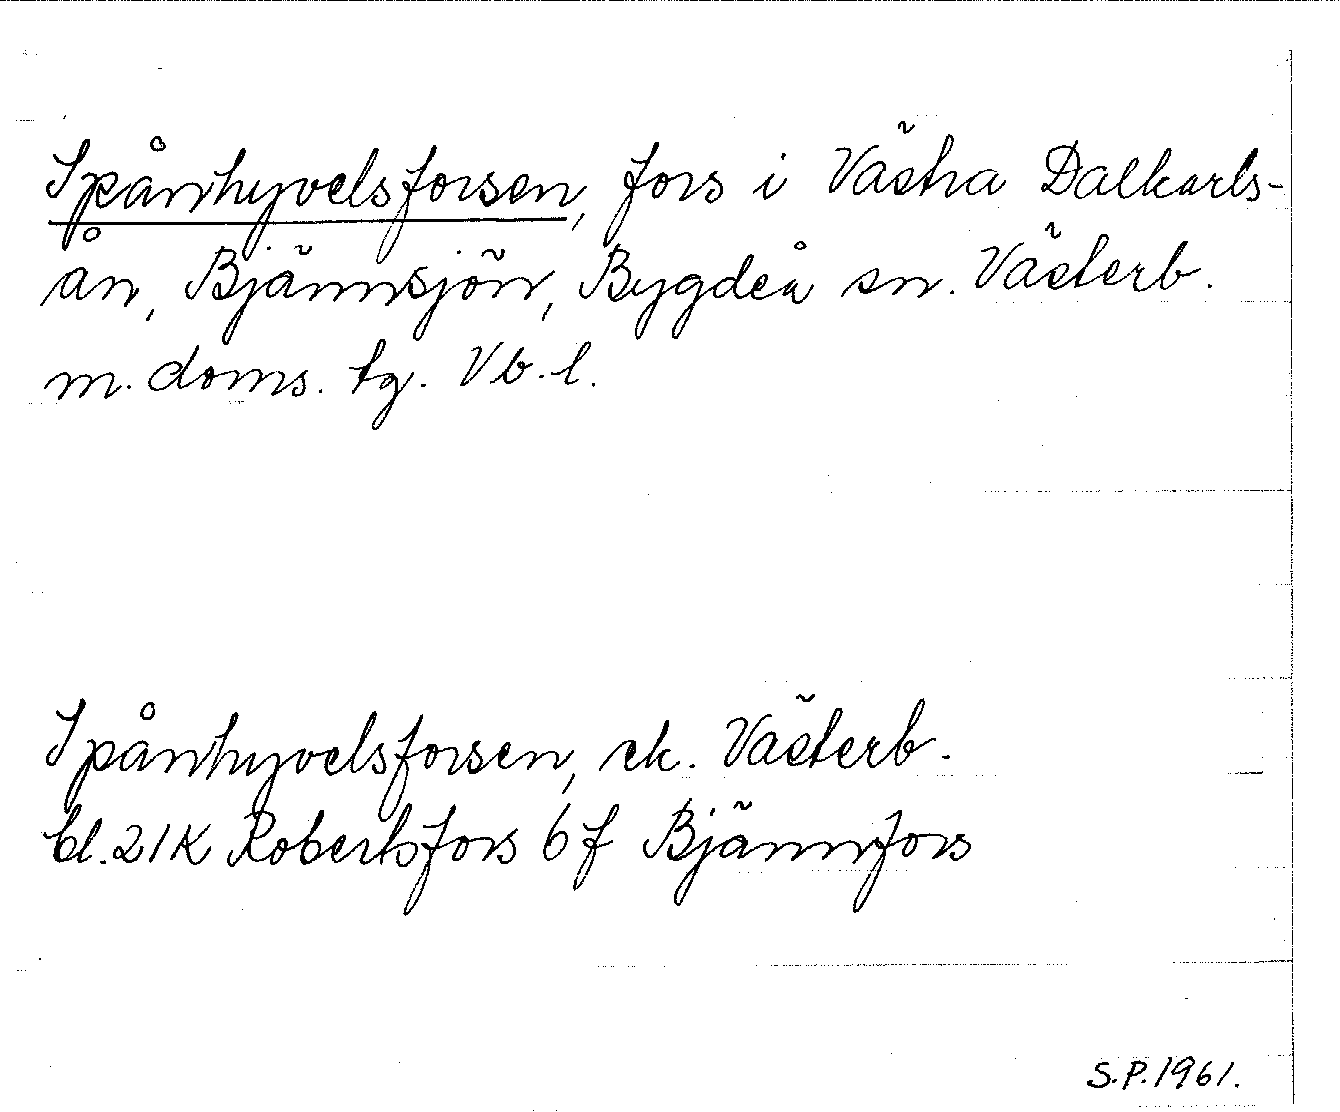 Spånhyvelsforsen, fors i Västra Dalkarls-
ån, Bjännsjön, Bygdeå sn. Västerb.
m. doms. tg. Vb. l.
Spånhyvelsforsen, ek. Västerb.
bl. 21K Robertsfors 6f Bjännfors
S.P. 1961.